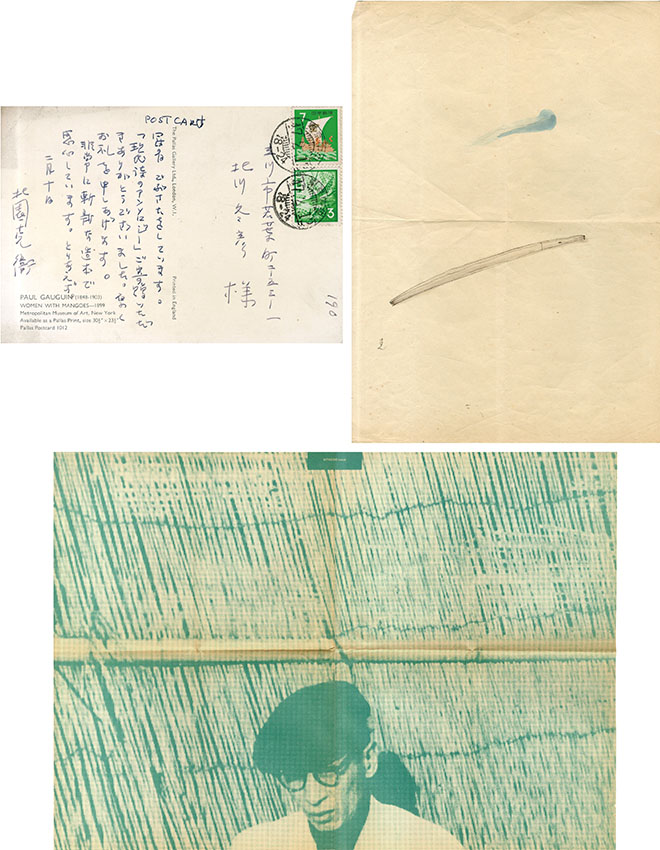 POST CARD
ごぶさたをしています。
アンソロジー」ご恵贈いただ
きありがとうございました。
お礼を申しあげます。
非常に斬新な造本で
感心しています。とりあえず
二月十日
北園克衛
The Pallas Gallery Ltd., London, W.1.
Printed in England
川市若葉町
北川冬彦
様
7
3
190
PAUL GAUGUIN (1848-1903)
WOMEN WITH MANGOES—1899
Metropolitan Museum of Art, New York
Available as a Pallas Print, size 30½" × 23½"
Pallas Postcard 1012